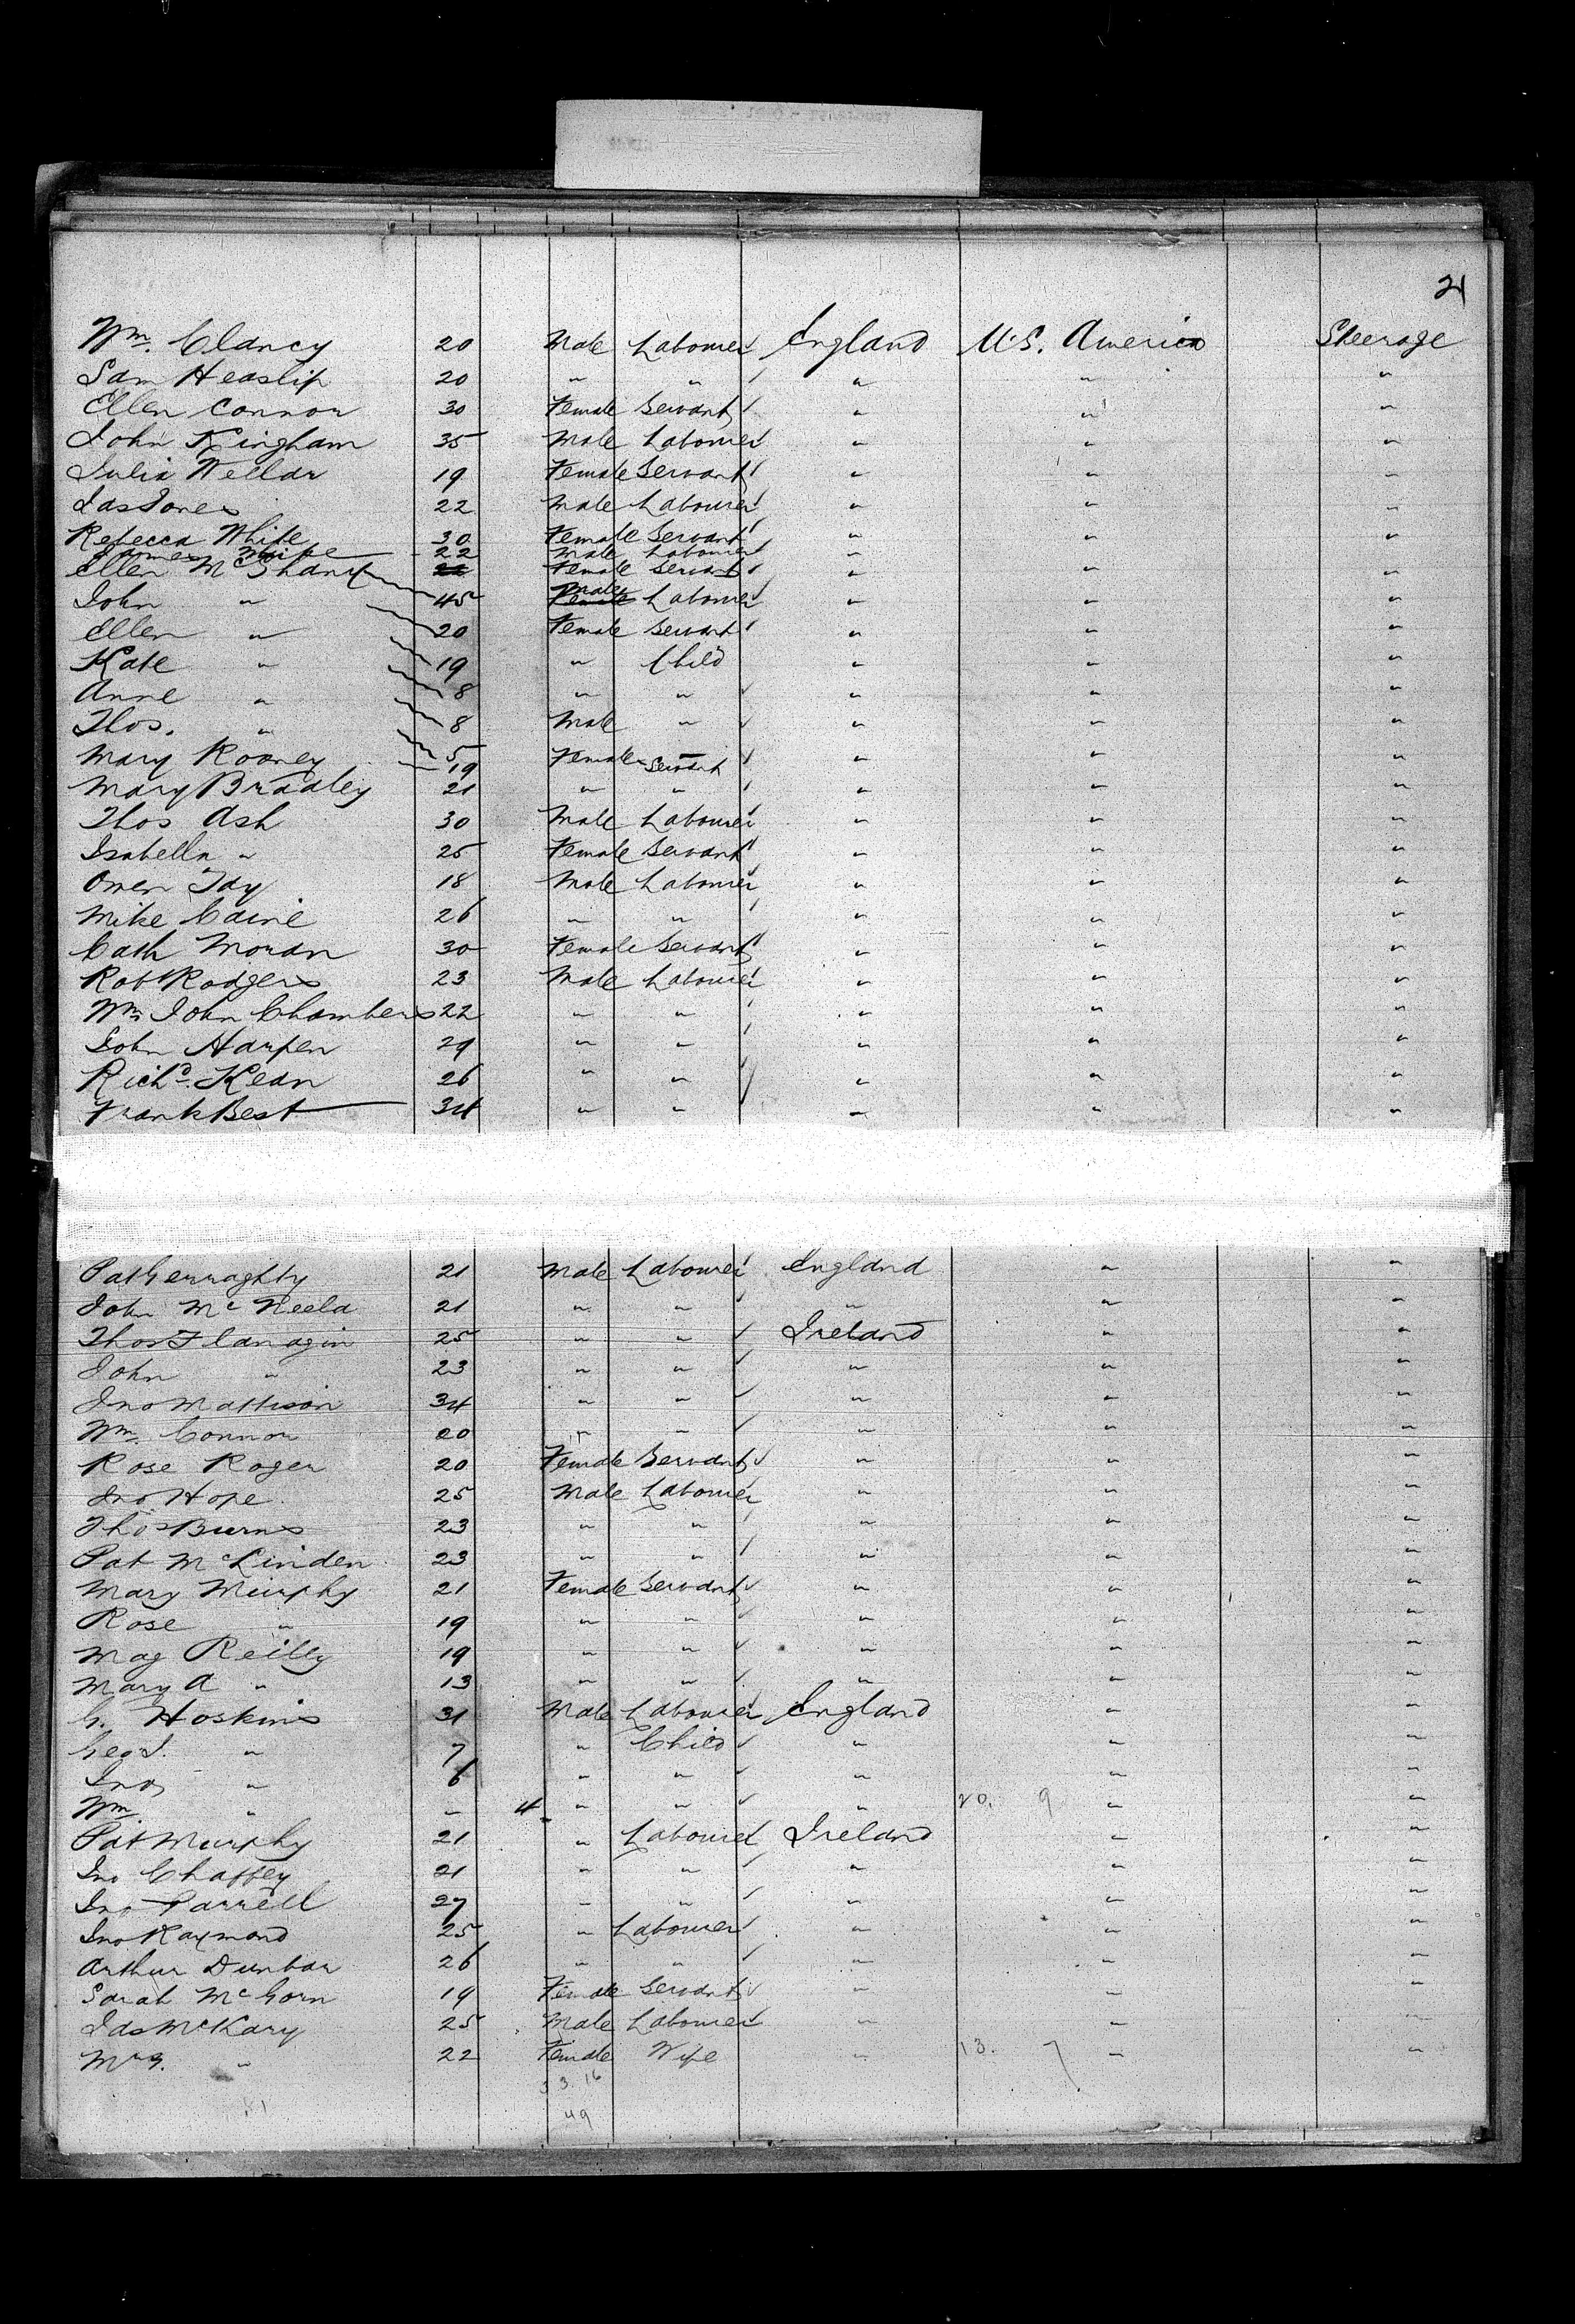 21
Wm. Clancy 20 Male Labourer England U.S. America Steerage
Sam Heaslip 20 " " " " "
Ellen Connor 30 Female Servant " " "
John Kingham 35 Male Labourer " " "
Julia Wellar 19 Female Servant " " "
Jas Jones 22 Male Labourer " " "
Rebecca White 30 Female Servant " " "
James 22 Male Labourer "
Ellen McShane 22 Female Servant " " "
John " 45 Male Female Labourer " " "
Ellen " 20 Female Servant " " "
Kate " 19 " Child " " "
Anne " 8 " " " " "
Thos. " 8 Male " " " "
Mary Rooney 5 19 Female Servant " " "
Mary Bradley 21 " " " " "
Thos Ash 30 Male Labourer " " "
Isabella " 25 Female Servant " " "
Owen 18 Male Labourer " " "
Mike Caine 26 " " " " "
Cath Moran 30 Female Servant " " "
Rob Rodgers 23 Male Labourer " " "
Wm John Chambers 22 " " " " "
John Harpen 29 " " " " "
Richd. Kean 26 " " " " "
Frank Best 34 " " " " "
Pat Gerraghty 21 Male Labourer England " "
John McNeela 21 " " " " "
Thos Flanagin 25 " " Ireland " "
John " 23 " " " " "
Jno Mattison 34 " " " " "
Wm. Connor 20 " " " " "
Rose Roger 20 Female Servant " " "
Jno Hope 25 Male Labourer " " "
Thos Burns 23 " " " " "
Pat McLinden 23 " " " " "
Mary Murphy 21 Female Servant " " "
Rose " 19 " " " " "
Mag Reilly 19 " " " " "
Mary A " 13 " " " " "
G. Hoskins 31 Male Labourer England " "
Geo J. " 7 " Child " " "
Jno " 6 " " " " "
Wm " - 4 " " " 20. 9 " "
Pat Murphy 21 " Labourer Ireland " "
Jno Chaffey 21 " " " " "
Jno Farrell 27 " " " " "
Jno Raymond 25 " Labourer " " "
Arthur Dunbar 26 " " " " "
Sarah McGorn 19 Female Servant " " "
Jas McKary 25 Male Labourer " " "
Mrs. " 22 Female Wife " 13. 7 " "
33.16
81 49